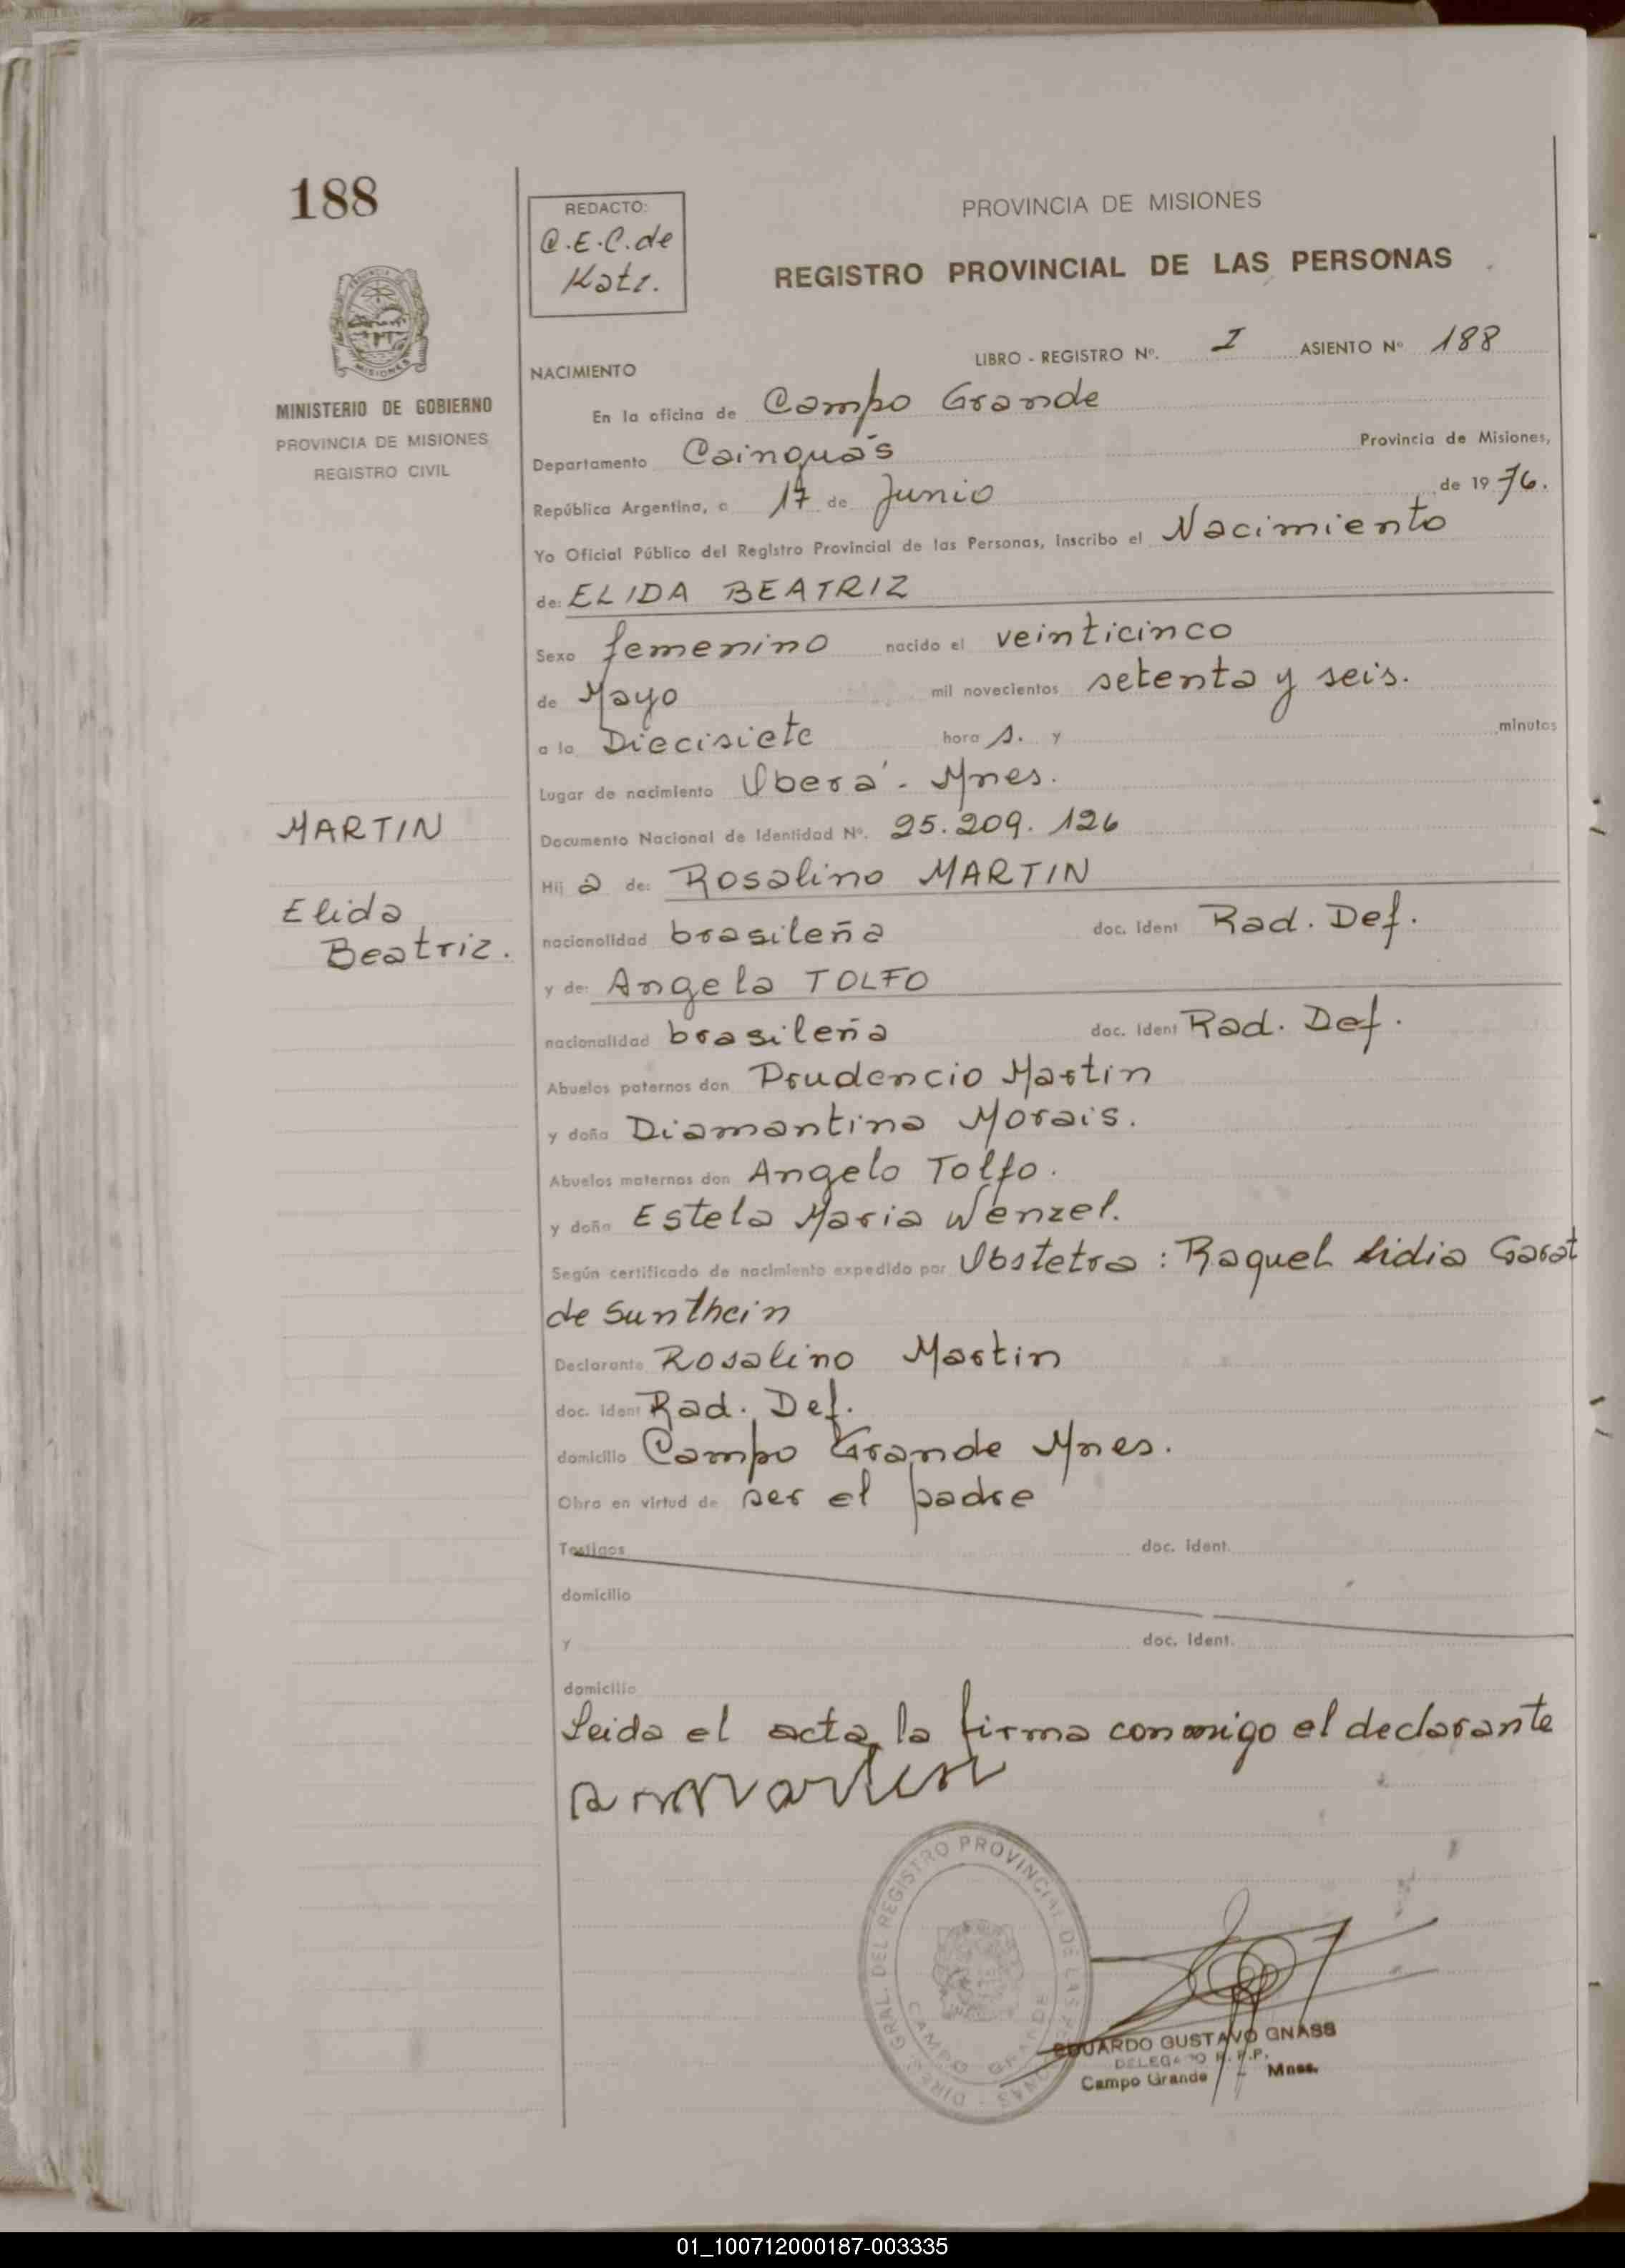 188
MINISTERIO DE GOBIERNO
PROVINCIA DE MISIONES
REGISTRO CIVIL
MARTIN
Elida
Beatriz.
REDACTO:
C.E.C. de
Katz.
PROVINCIA DE MISIONES
REGISTRO PROVINCIAL DE LAS PERSONAS
LIBRO - REGISTRO Nº. I ASIENTO Nº 188
NACIMIENTO
En la oficina de Campo Grande
Departamento Cainguás Provincia de Misiones,
República Argentina, a 17 de Junio de 1976.
Yo Oficial Público del Registro Provincial de las Personas, inscribo el Nacimiento
de: ELIDA BEATRIZ
Sexo femenino nacido el veinticinco
de Mayo mil novecientos setenta y seis.
a la Diecisiete hora s. y minutos
Lugar de nacimiento Oberá - Mnes.
Documento Nacional de Identidad Nº. 25.209.126
Hij a de: Rosalino MARTIN
nacionalidad brasileña doc. ident Rad. Def.
y de: Angela TOLFO
nacionalidad brasileña doc. ident Rad. Def.
Abuelos paternos don Prudencio Martin
y doña Diamantina Morais.
Abuelos maternos don Angelo Tolfo.
y doña Estela Maria Wenzel.
Según certificado de nacimiento expedido por Obstetra: Raquel Lidia Garat
de Sunthein
Declarante Rosalino Martin
doc. ident Rad. Def.
domicilio Campo Grande Mnes.
Obra en virtud de ser el padre
Testigos doc. ident.
domicilio
y doc. ident.
domicilio
Leida el acta, la firma conmigo el declarante
DIREC. GRAL. DEL REGISTRO PROVINCIAL DE LAS PERSONAS
CAMPO GRANDE
EDUARDO GUSTAVO GNASS
DELEGADO R.P.P.
Campo Grande - Mnes.
01_100712000187-003335